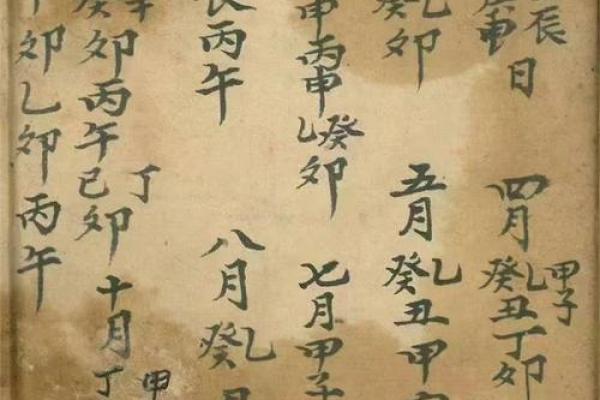 辰申日四月甲子乙癸丑丁卯
乙癸卯五月乙癸丑甲
申丙申癸乙卯七月甲子
辰丙午八月乙癸
癸卯丙午丁己卯十月甲丁
卯乙卯丙午